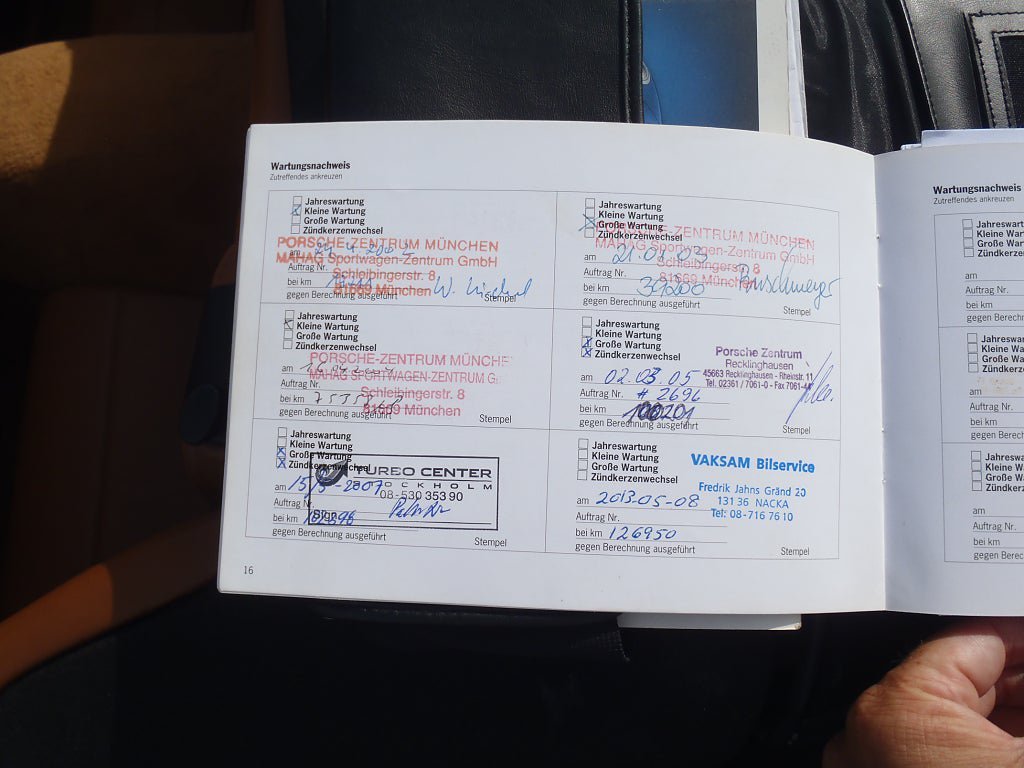 Wartungsnachweis
Zutreffendes ankreuzen
Jahreswartung
Kleine Wartung
Große Wartung
Zündkerzenwechsel
PORSCHE-ZENTRUM MÜNCHEN
MAHAG Sportwagen-Zentrum GmbH
Schleibingerstr. 8
81669 München
am
Auftrag Nr.
bei km
gegen Berechnung ausgeführt
Stempel
Jahreswartung
Kleine Wartung
Große Wartung
Zündkerzenwechsel
PORSCHE-ZENTRUM MÜNCHEN
MAHAG Sportwagen-Zentrum GmbH
Schleibingerstr. 8
81669 München
am 21.01.03
Auftrag Nr.
bei km 39200
gegen Berechnung ausgeführt
Stempel
Jahreswartung
Kleine Wartung
Große Wartung
Zündkerzenwechsel
PORSCHE-ZENTRUM MÜNCHE
MAHAG SPORTWAGEN-ZENTRUM G
Schleibingerstr. 8
81669 München
am
Auftrag Nr.
bei km
gegen Berechnung ausgeführt
Stempel
Jahreswartung
Kleine Wartung
Große Wartung
Zündkerzenwechsel
Porsche Zentrum
Recklinghausen
45663 Recklinghausen - Rheinstr. 11
Tel. 02361 / 7061-0 - Fax 7061-44
am 02.03.05
Auftrag Nr. # 2696
bei km 100201
gegen Berechnung ausgeführt
Stempel
Jahreswartung
Kleine Wartung
Große Wartung
Zündkerzenwechsel
TURBO CENTER
STOCKHOLM
08-530 353 90
Sign
am 15/5-2007
Auftrag Nr.
bei km
gegen Berechnung ausgeführt
Stempel
Jahreswartung
Kleine Wartung
Große Wartung
Zündkerzenwechsel
VAKSAM Bilservice
Fredrik Jahns Gränd 20
131 36 NACKA
Tel: 08-716 76 10
am 2013-05-08
Auftrag Nr.
bei km 126950
gegen Berechnung ausgeführt
Stempel
16
Wartungsnachweis
Zutreffendes ankreuzen
Jahreswartung
Kleine Wartung
Große Wartung
Zündkerzenwech
am
Auftrag Nr.
bei km
gegen Berechnun
Jahreswartu
Kleine Wart
Große Wart
Zündkerzen
am
Auftrag Nr.
bei km
gegen Berech
Jahresw
Kleine Wa
Große Wa
Zündkerz
am
Auftrag Nr.
bei km
gegen Berec